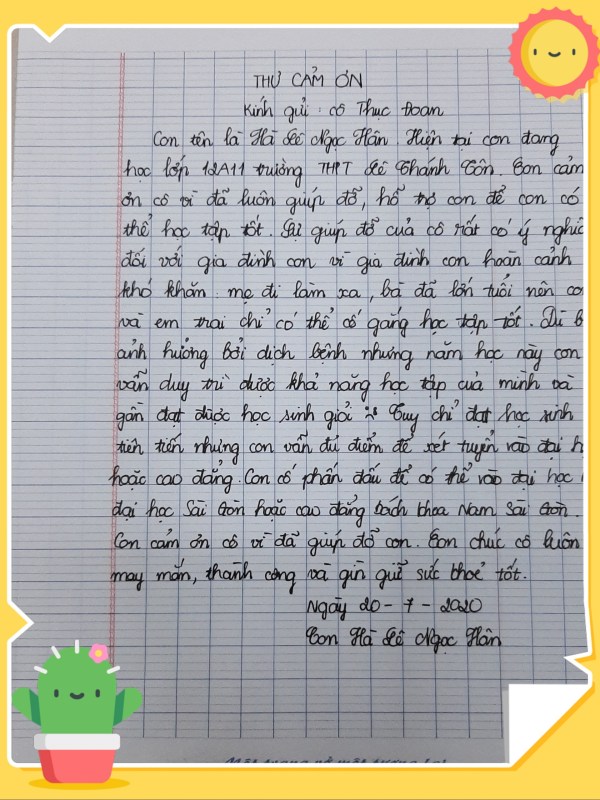 THƯ CẢM ƠN
Kính gửi : cô Thục Đoan
Con tên là Hà Lê Ngọc Hân. Hiện tại con đang
học lớp 12A11 trường THPT Lê Thánh Tôn. Con cảm
ơn cô vì đã luôn giúp đỡ, hỗ trợ con để con có
thể học tập tốt. Sự giúp đỡ của cô rất có ý nghĩa
đối với gia đình con vì gia đình con hoàn cảnh
khó khăn mẹ đi làm xa, bà đã lớn tuổi nên co
và em trai chỉ có thể cố gắng học tập tốt. Dù b
ảnh hưởng bởi dịch bệnh nhưng năm học này con
vẫn duy trì được khả năng học tập của mình và
gần đạt được học sinh giỏi :< Tuy chỉ đạt học sinh
tiên tiến nhưng con vẫn đủ điểm để xét tuyển vào đại h
hoặc cao đẳng. Con cố phấn đấu để có thể vào đại học
đại học Sài Gòn hoặc cao đẳng bách khoa Nam Sài Gòn.
Con cảm ơn cô vì đã giúp đỡ con. Con chúc cô luôn
may mắn, thành công và gìn giữ sức khoẻ tốt.
Ngày 20 - 7 - 2020
Con Hà Lê Ngọc Hân